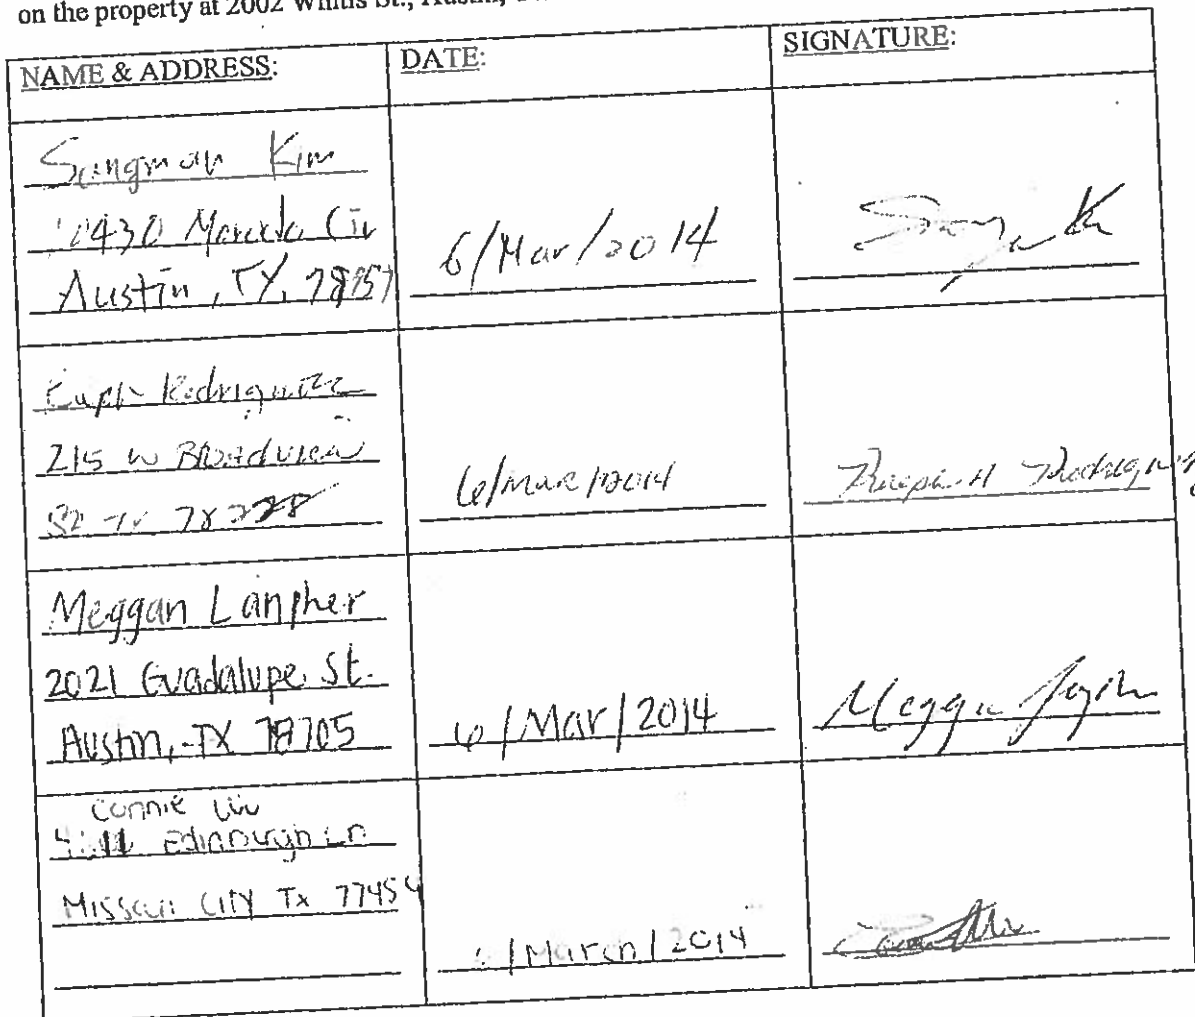 on the property at 2002 Whitis St., Austin,
NAME & ADDRESS:
DATE:
SIGNATURE:
Sungman Kim
Cir
Austin, TX, 78757
6/Mar/2014
Rodriguez
215 W Broadview
TX 78228
6/Mar/2014
Rodriguez
Meggan Lanpher
2021 Guadalupe St.
Austin, TX 78705
6/Mar/2014
Meggan
Connie Liu
Edinburgh Ln
Missouri City Tx 77459
6/March/2014